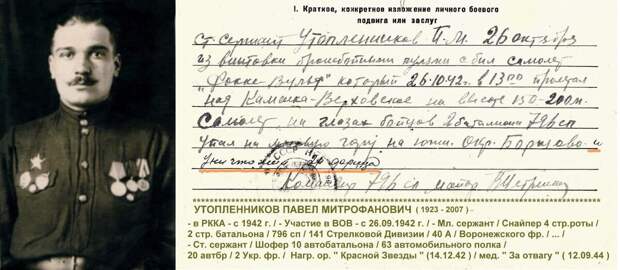 I. Краткое, конкретное изложение личного боевого
подвига или заслуг
Ст. сержант Утопленников П.М. 26 октября
из винтовки бронебойными пулями сбил самолет
"Фокке Вульф" который 26.10.42 г. в 13 00 пролетал
над Камышка-Верховское на высоте 150-200 м.
Самолет на глазах бойцов 2 батальона 796 сп
упал на гору на южн. окр. Борщово и
Командир 796 сп майор
УТОПЛЕННИКОВ ПАВЕЛ МИТРОФАНОВИЧ ( 1923 - 2007 ) –
- в РККА - с 1942 г. / - Участие в ВОВ - с 26.09.1942 г. / - Мл. сержант / Снайпер 4 стр.роты /
2 стр. батальона / 796 сп / 141 Стрелковой Дивизии / 40 А / Воронежского фр. / ... /
- Ст. сержант / Шофер 10 автобатальона / 63 автомобильного полка /
20 автбр / 2 Укр. фр. / Нагр. ор. " Красной Звезды " (14.12.42 ) / мед. " За отвагу " ( 12.09.44 )